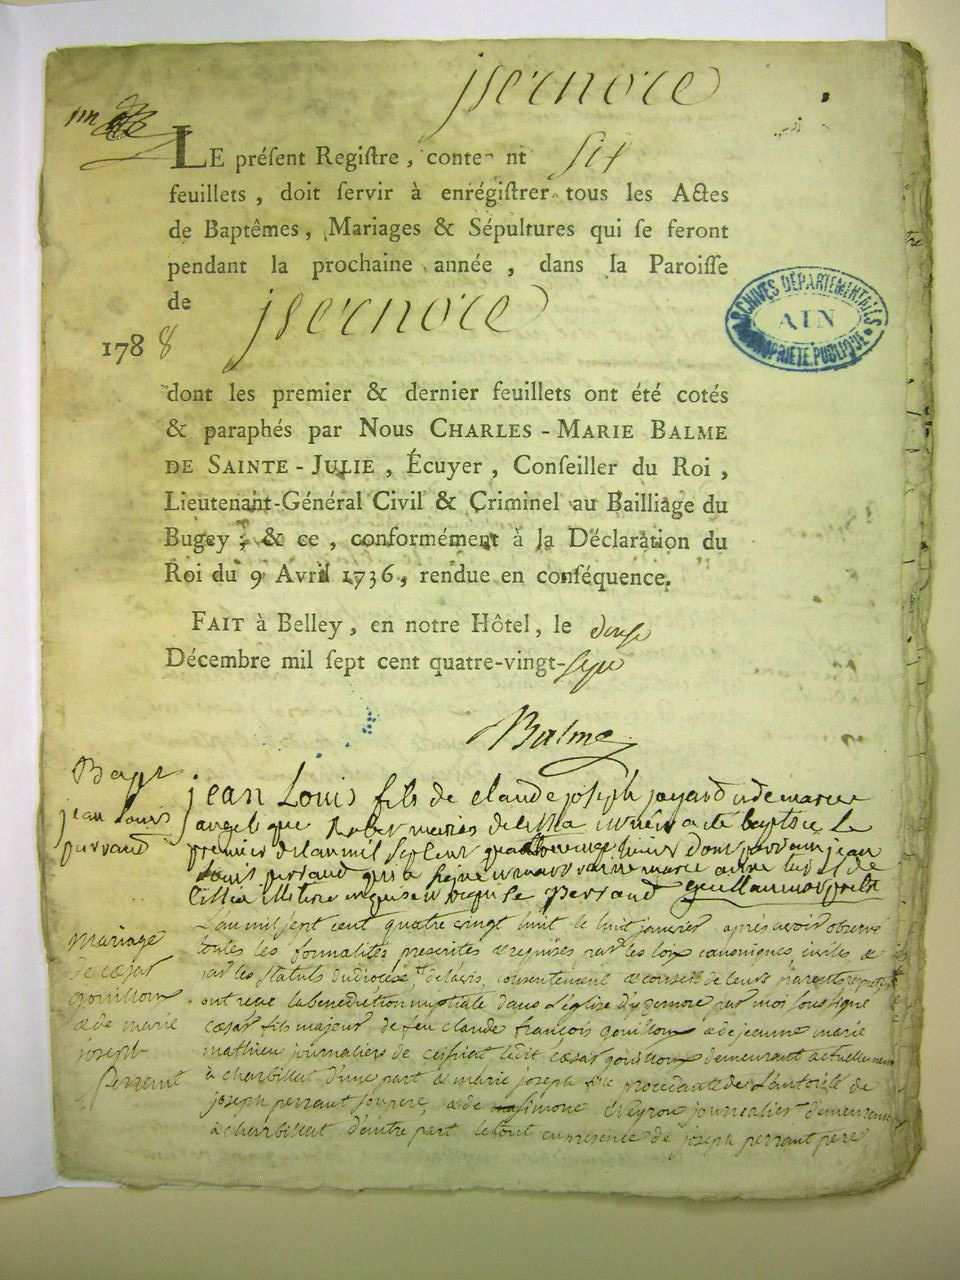 jsernore
LE préſent Regiſtre, contenant six
feuillets, doit ſervir à enrégiſtrer tous les Actes
de Baptêmes, Mariages & Sépultures qui ſe feront
pendant la prochaine année, dans la Paroiſſe
de jsernore
1788
ARCHIVES DÉPARTEMENTALES
AIN
PROPRIÉTÉ PUBLIQUE
dont les premier & dernier feuillets ont été cotés
& paraphés par Nous CHARLES-MARIE BALME
DE SAINTE-JULIE, Écuyer, Conſeiller du Roi,
Lieutenant-Général Civil & Criminel au Bailliage du
Bugey; & ce, conformément à la Déclaration du
Roi du 9 Avril 1736, rendue en conſéquence.
FAIT à Belley, en notre Hôtel, le douse
Décembre mil ſept cent quatre-vingt-sept
Balme
Bapt
jean Louis
perraud
jean Louis fils de claude joseph joyard et de marie
angelique mariés de a été baptisé Le
premier de lan mil sept cent quatre vingt huit dont parrain jean
Louis perraud qui a signé et marraine marie anne de
perraud
mariage
de cæsar
gouillon
et de marie
joseph
perrant
L'an mil sept cent quatre vingt huit le huit janvier après avoir observé
toutes les formalités prescrites et requises par les loix canoniques, civiles et
par les statuts du diocèse, de l'avis, consentement et conseil de leurs parents
ont reçu la bénédiction nuptiale dans L'église d'yzernore par moi soussigné
cæsar fils majeur de feu claude françois gouillon et de jeanne marie
mathieu journaliers de ceissiat ledit cæsar gouillon demeurant actuellement
à charbillat d'une part et marie joseph fille procédante de L'autorité de
joseph perrant son père, et de simone Neyron journalier demeurant
à charbillat d'autre part le tout en présence de joseph perrant père